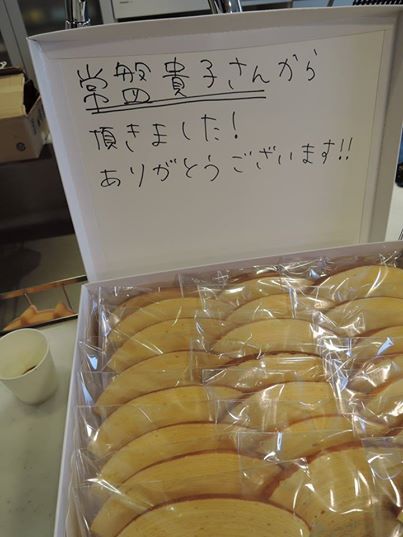 常盤貴子さんから
頂きました!
ありがとうございます!!